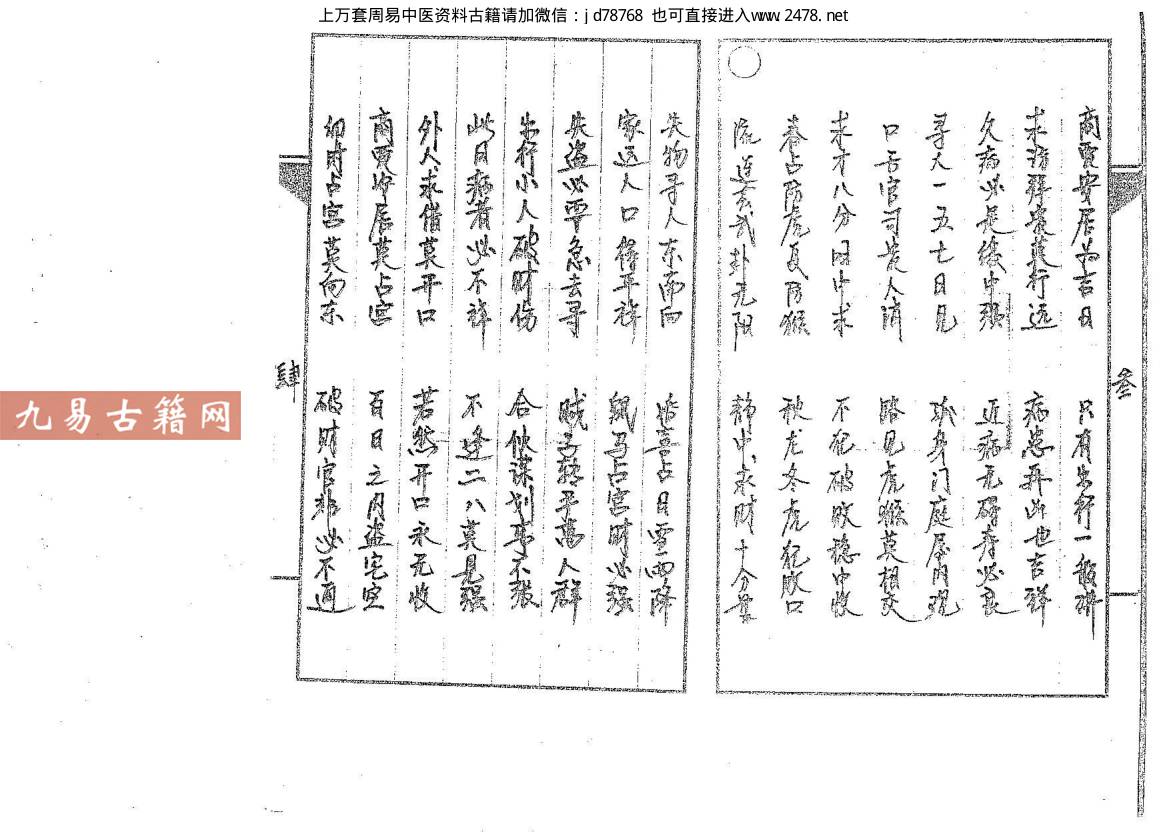 上万套周易中医资料古籍请加微信：jd78768 也可直接进入www.2478.net
商贾安居为吉日 只有出行一般讲
求财得安莫行远 病患再此也吉祥
久病必是缓中强 近病无碍寿必长
寻人一五七日见 孤身门庭屋内现
口舌官司贵人消 路见虎猴莫相交
求才八分日中求 不犯破败稳中收
春占防虎夏防猴 秋龙冬虎犯败口
流连玄武卦无阳 静中求财十分
叁
失物寻人东南向 占日雪雨降
家远人口得平祥 占宫财必强
失盗必要急去寻 贼子转手离人群
出行小人破财伤 合伙谋划事不张
此日病者必不祥 不逢二八莫见强
外人求借莫开口 若然开口永无收
商贾 居莫占宫 百日之内盗宅空
卯时占宫莫向东 破财官非必不通
肆
九易古籍网